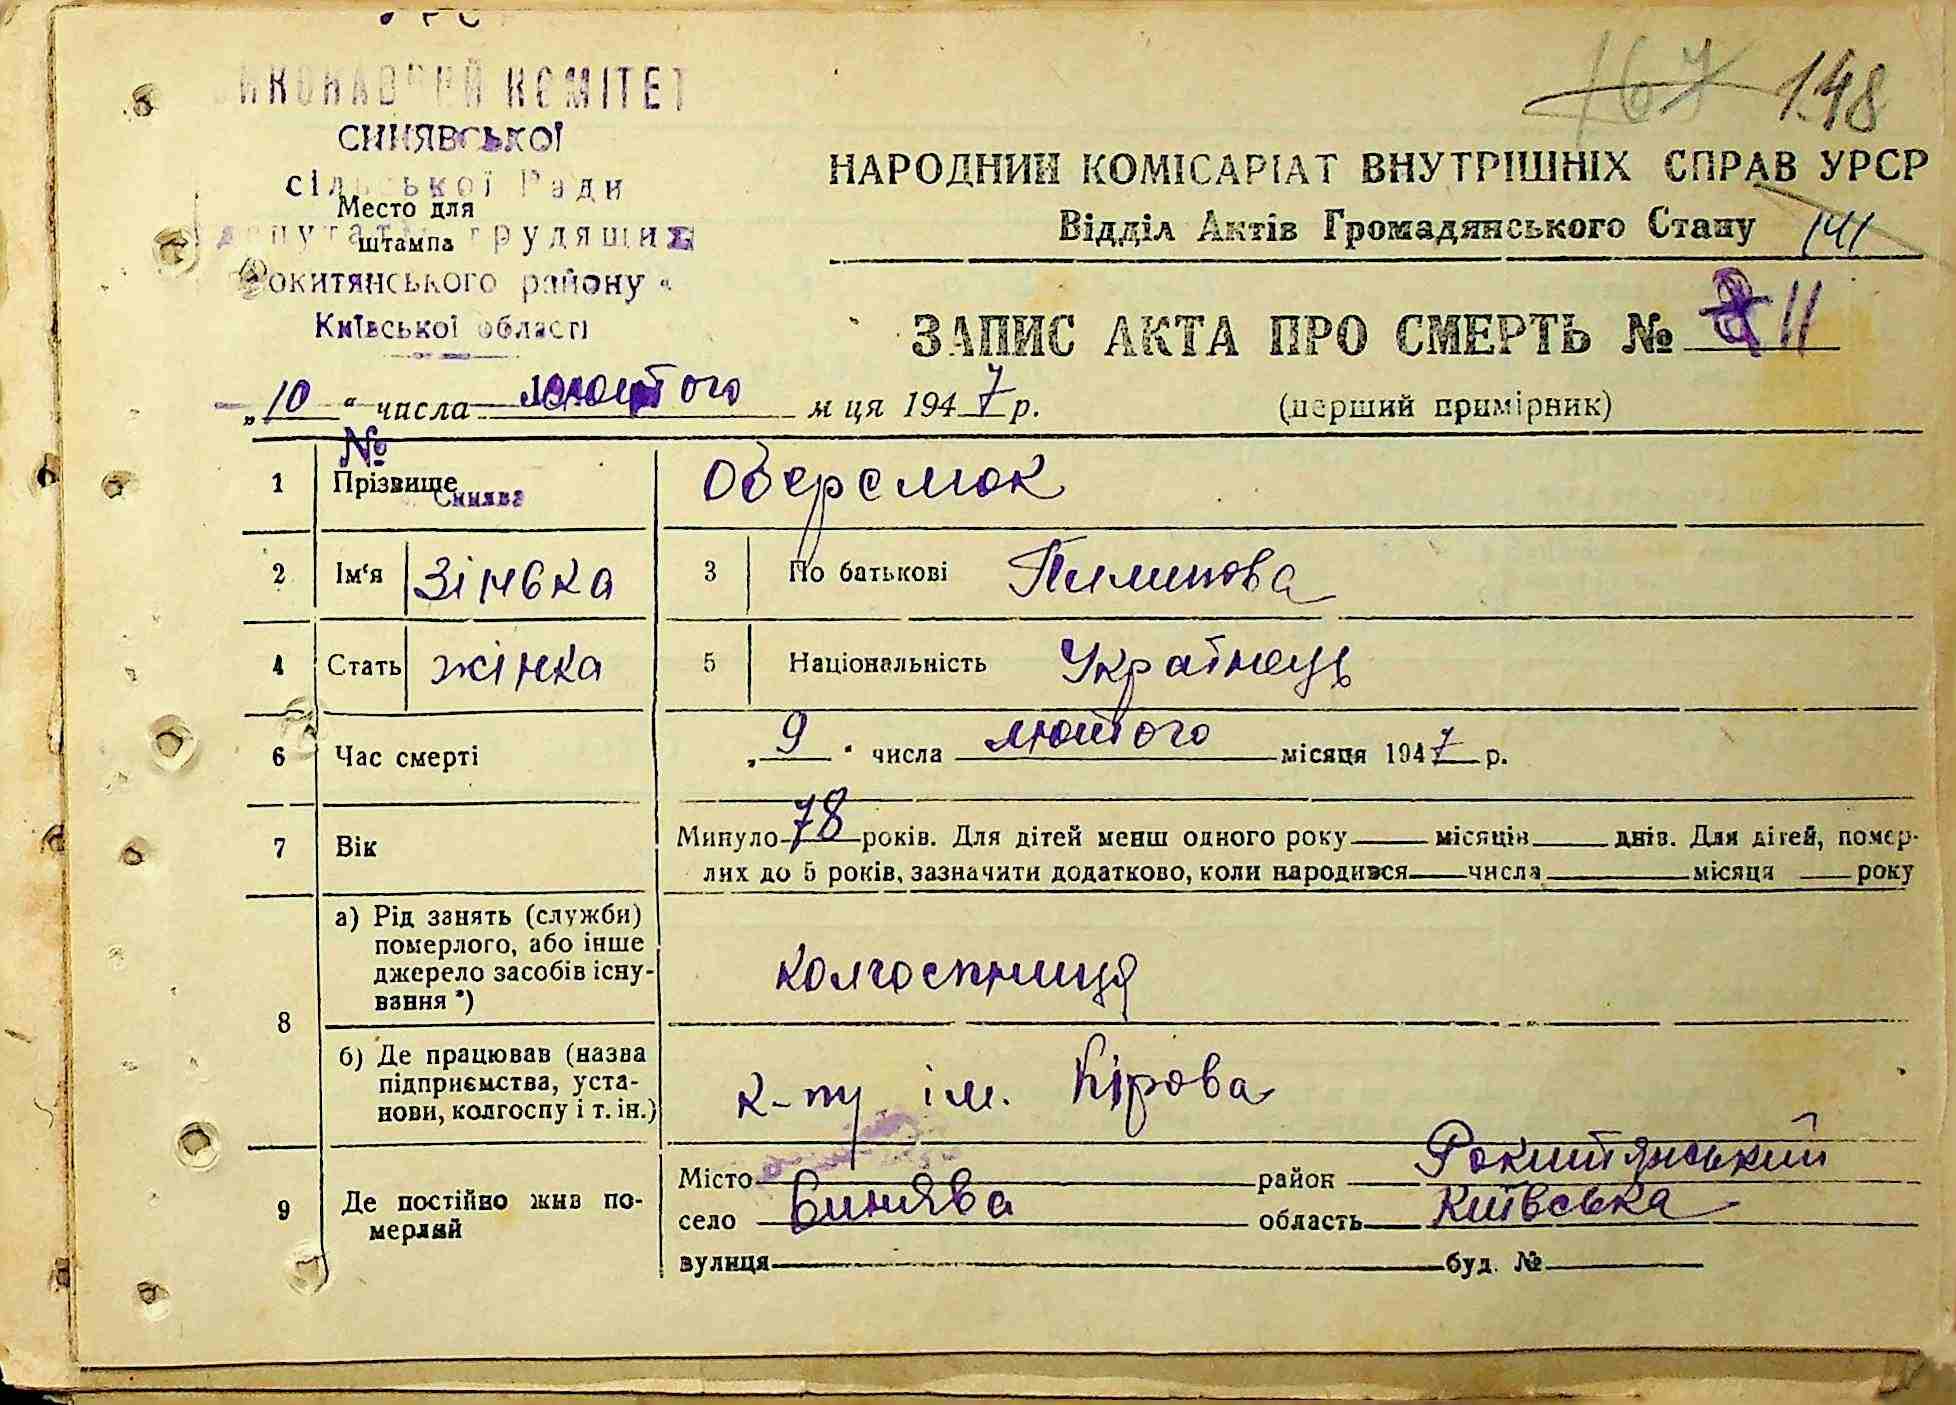 ВИКОНАВЧИЙ КОМІТЕТ
СИНЯВСЬКОЇ
сільської Ради
депутатів трудящих
Рокитянського району
Київської області
Место для
штампа
167 148
НАРОДНИЙ КОМІСАРІАТ ВНУТРІШНІХ СПРАВ УРСР
Відділ Актів Громадянського Стану 141
ЗАПИС АКТА ПРО СМЕРТЬ № 11
„10“ числа лютого м ця 1947 р. (перший примірник)
№
Синява
1 Прізвище Оверємок
2 Ім'я Зінька 3 По батькові Пилипова
4 Стать жінка 5 Національність Українець
6 Час смерті „9" числа лютого місяця 1947 р.
7 Вік Минуло 78 років. Для дітей менш одного року місяців днів. Для дітей, помер-
лих до 5 років, зазначити додатково, коли народився числа місяця року
8 а) Рід занять (служби)
померлого, або інше
джерело засобів існу-
вання *) колгоспниця
б) Де працював (назва
підприємства, уста-
нови, колгоспу і т. ін.) к-пу ім. Кірова
9 Де постійно жив по-
мерлий
Місто район Рокитянський
село Синява область Київська
вулиця буд. №